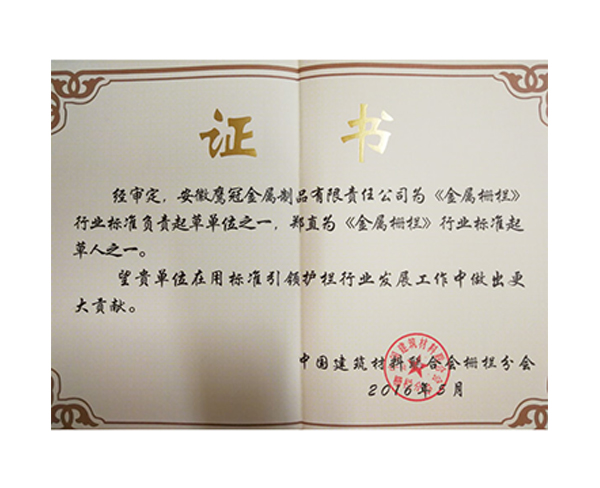 证 书
经审定，安徽鹰冠金属制品有限责任公司为《金属栅栏》
行业标准负责起草单位之一，郑直为《金属栅栏》行业标准起
草人之一。
望贵单位在用标准引领护栏行业发展工作中做出更
大贡献。
中国建筑材料联合会栅栏分会
2016年5月